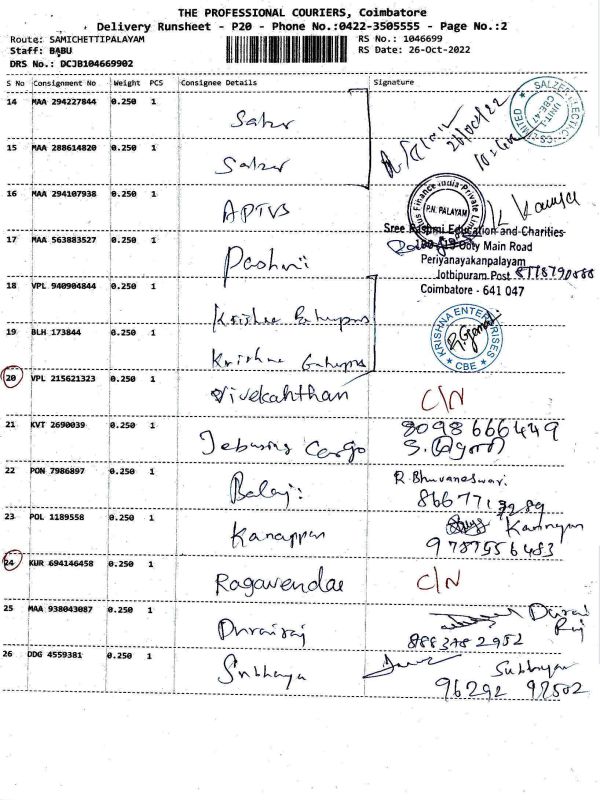 THE PROFESSIONAL COURIERS, Coimbatore
Delivery Runsheet - P20 - Phone No.:0422-3505555 - Page No.:2
Route: SAMICHETTIPALAYAM RS No.: 1046699
Staff: BABU RS Date: 26-Oct-2022
DRS No.: DCJB104669902
S No Consignment No Weight PCS Consignee Details Signature
14 MAA 294227844 0.250 1 Salzer
26/Oct/22
SALZER ELECTRONICS LIMITED UNIT- CBE-47
15 MAA 288614820 0.250 1 Salzer
16 MAA 294107938 0.250 1 APTUS
P.N. PALAYAM
Finance India Private
Sree Rashmi Education and Charities
Ooty Main Road
17 MAA 563883527 0.250 1
Periyanayakanpalayam
Jothipuram Post
Coimbatore - 641 047
18 VPL 940904844 0.250 1 Krishna
KRISHNA ENTERPRISES CBE
19 BLH 173844 0.250 1 Krishna
20 VPL 215621323 0.250 1 Vivekahthan C/N
21 KVT 2690039 0.250 1 Cargo 8098666449
22 PON 7986897 0.250 1 Balaji R. Bhuvaneswari
86677
23 POL 1189558 0.250 1 Kanappan
9787556483
24 KUR 694146458 0.250 1 Ragavendae C/N
25 MAA 938043087 0.250 1 Durairaj Durai Raj
8883782952
26 DDG 4559381 0.250 1 Subbaya
96292 97502